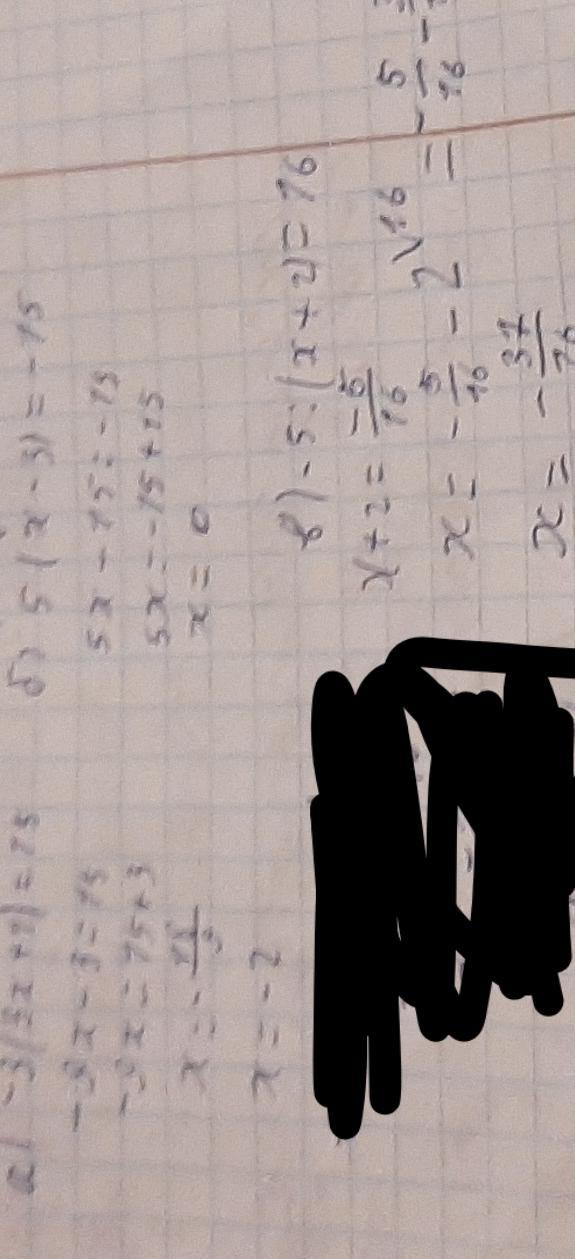 а) -3(3x+1)=15
-9x-3=15
-9x=15+3
x=-\frac{18}{9}
x=-2
б) 5(x-3)=-15
5x-15=-15
5x=-15+15
x=0
в) -5:(x+2)=16
x+2=\frac{-5}{16}
x=-\frac{5}{16}-2^{\16}=-\frac{5}{16}-
x=-\frac{37}{16}